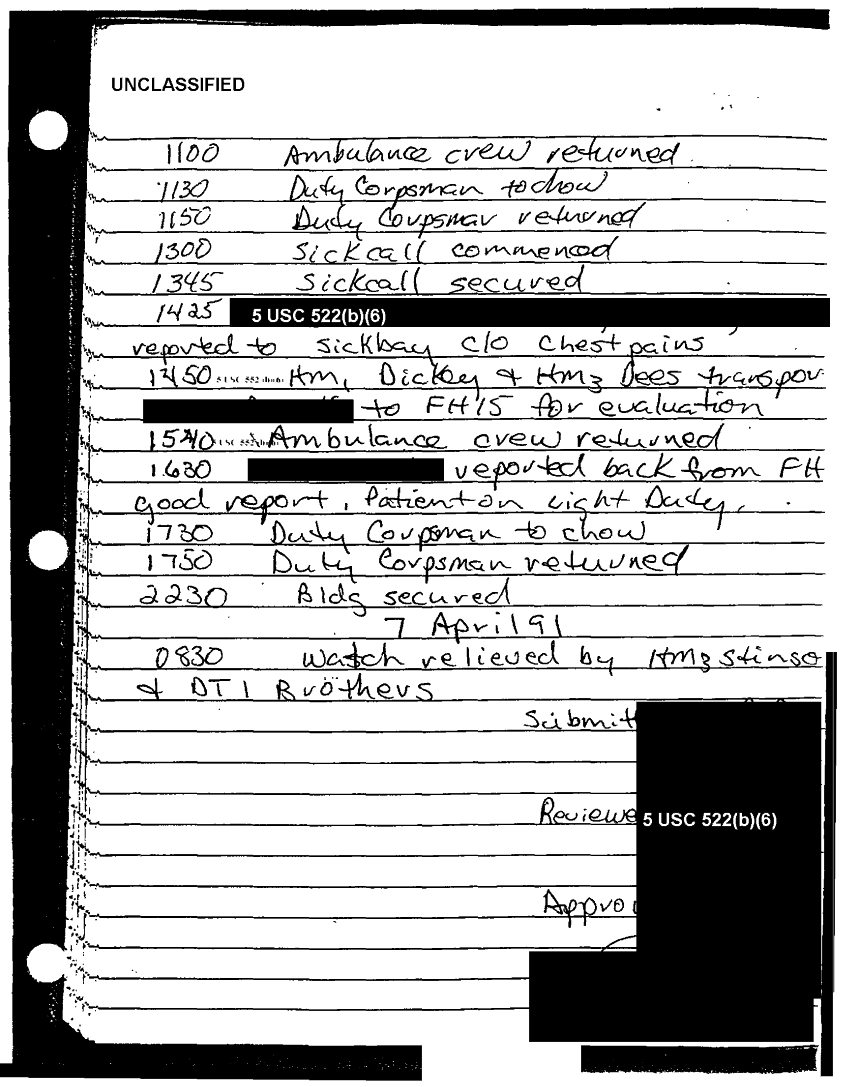 UNCLASSIFIED
1100 Ambulance crew returned
1130 Duty Corpsman to chow
1150 Duty Corpsman returned
1300 Sickcall commenced
1345 Sickcall secured
1425 5 USC 522(b)(6)
reported to sickbay c/o chest pains
1450 HM1 Dickey & HM3 Dees transpor
to FH15 for evaluation
1540 Ambulance crew returned
1630 reported back from FH
good report. Patient on light Duty.
1730 Duty Corpsman to chow
1750 Duty Corpsman returned
2230 Bldg secured
7 April 91
0830 watch relieved by HM3 Stinso
& DT1 Brothers
Submitt
Reviewe 5 USC 522(b)(6)
Approv